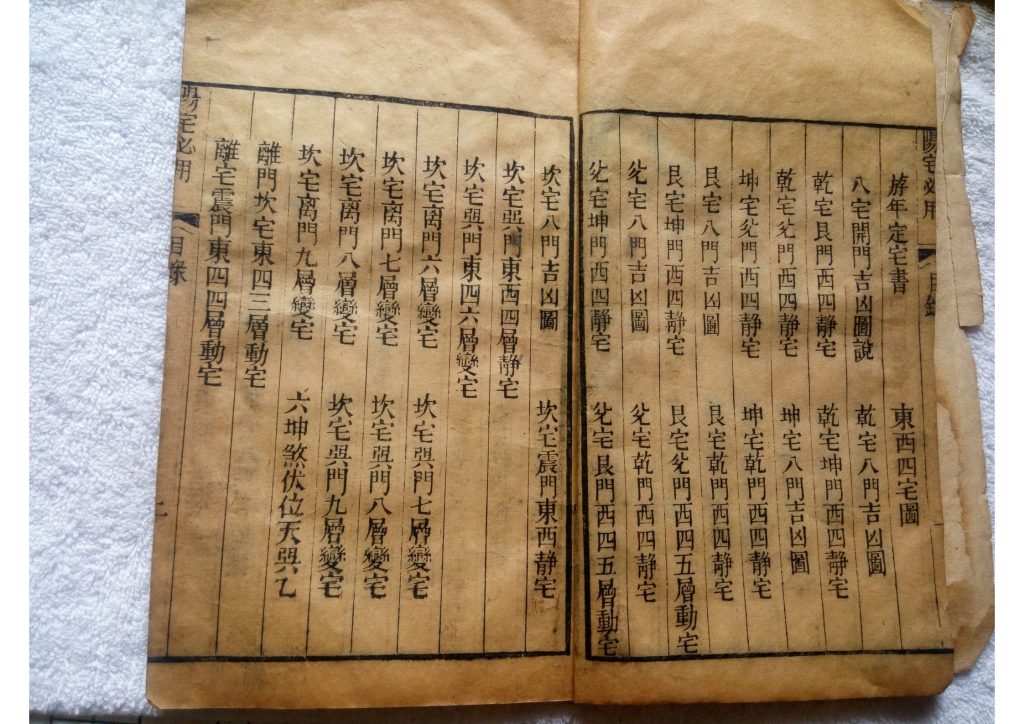 陽宅必用 目錄
斿年定宅書 東西四宅圖
八宅開門吉凶圖說 乾宅八門吉凶圖
乾宅艮門西四静宅 乾宅坤門西四静宅
乾宅兊門西四静宅 坤宅八門吉凶圖
坤宅兊門西四静宅 坤宅乾門西四静宅
艮宅八門吉凶圖 艮宅乾門西四静宅
艮宅坤門西四静宅 艮宅兊門西四五層動宅
兊宅八門吉凶圖 兊宅乾門西四静宅
兊宅坤門西四静宅 兊宅艮門西四五層動宅
坎宅八門吉凶圖 坎宅震門東西静宅
坎宅巽門東西四層静宅
坎宅巽門東四六層變宅
坎宅离門六層變宅 坎宅巽門七層變宅
坎宅离門七層變宅 坎宅巽門八層變宅
坎宅离門八層變宅 坎宅巽門九層變宅
坎宅离門九層變宅 六坤煞伏位天巽乙
離門坎宅東四三層動宅
離宅震門東四四層動宅
陽宅必用 目錄